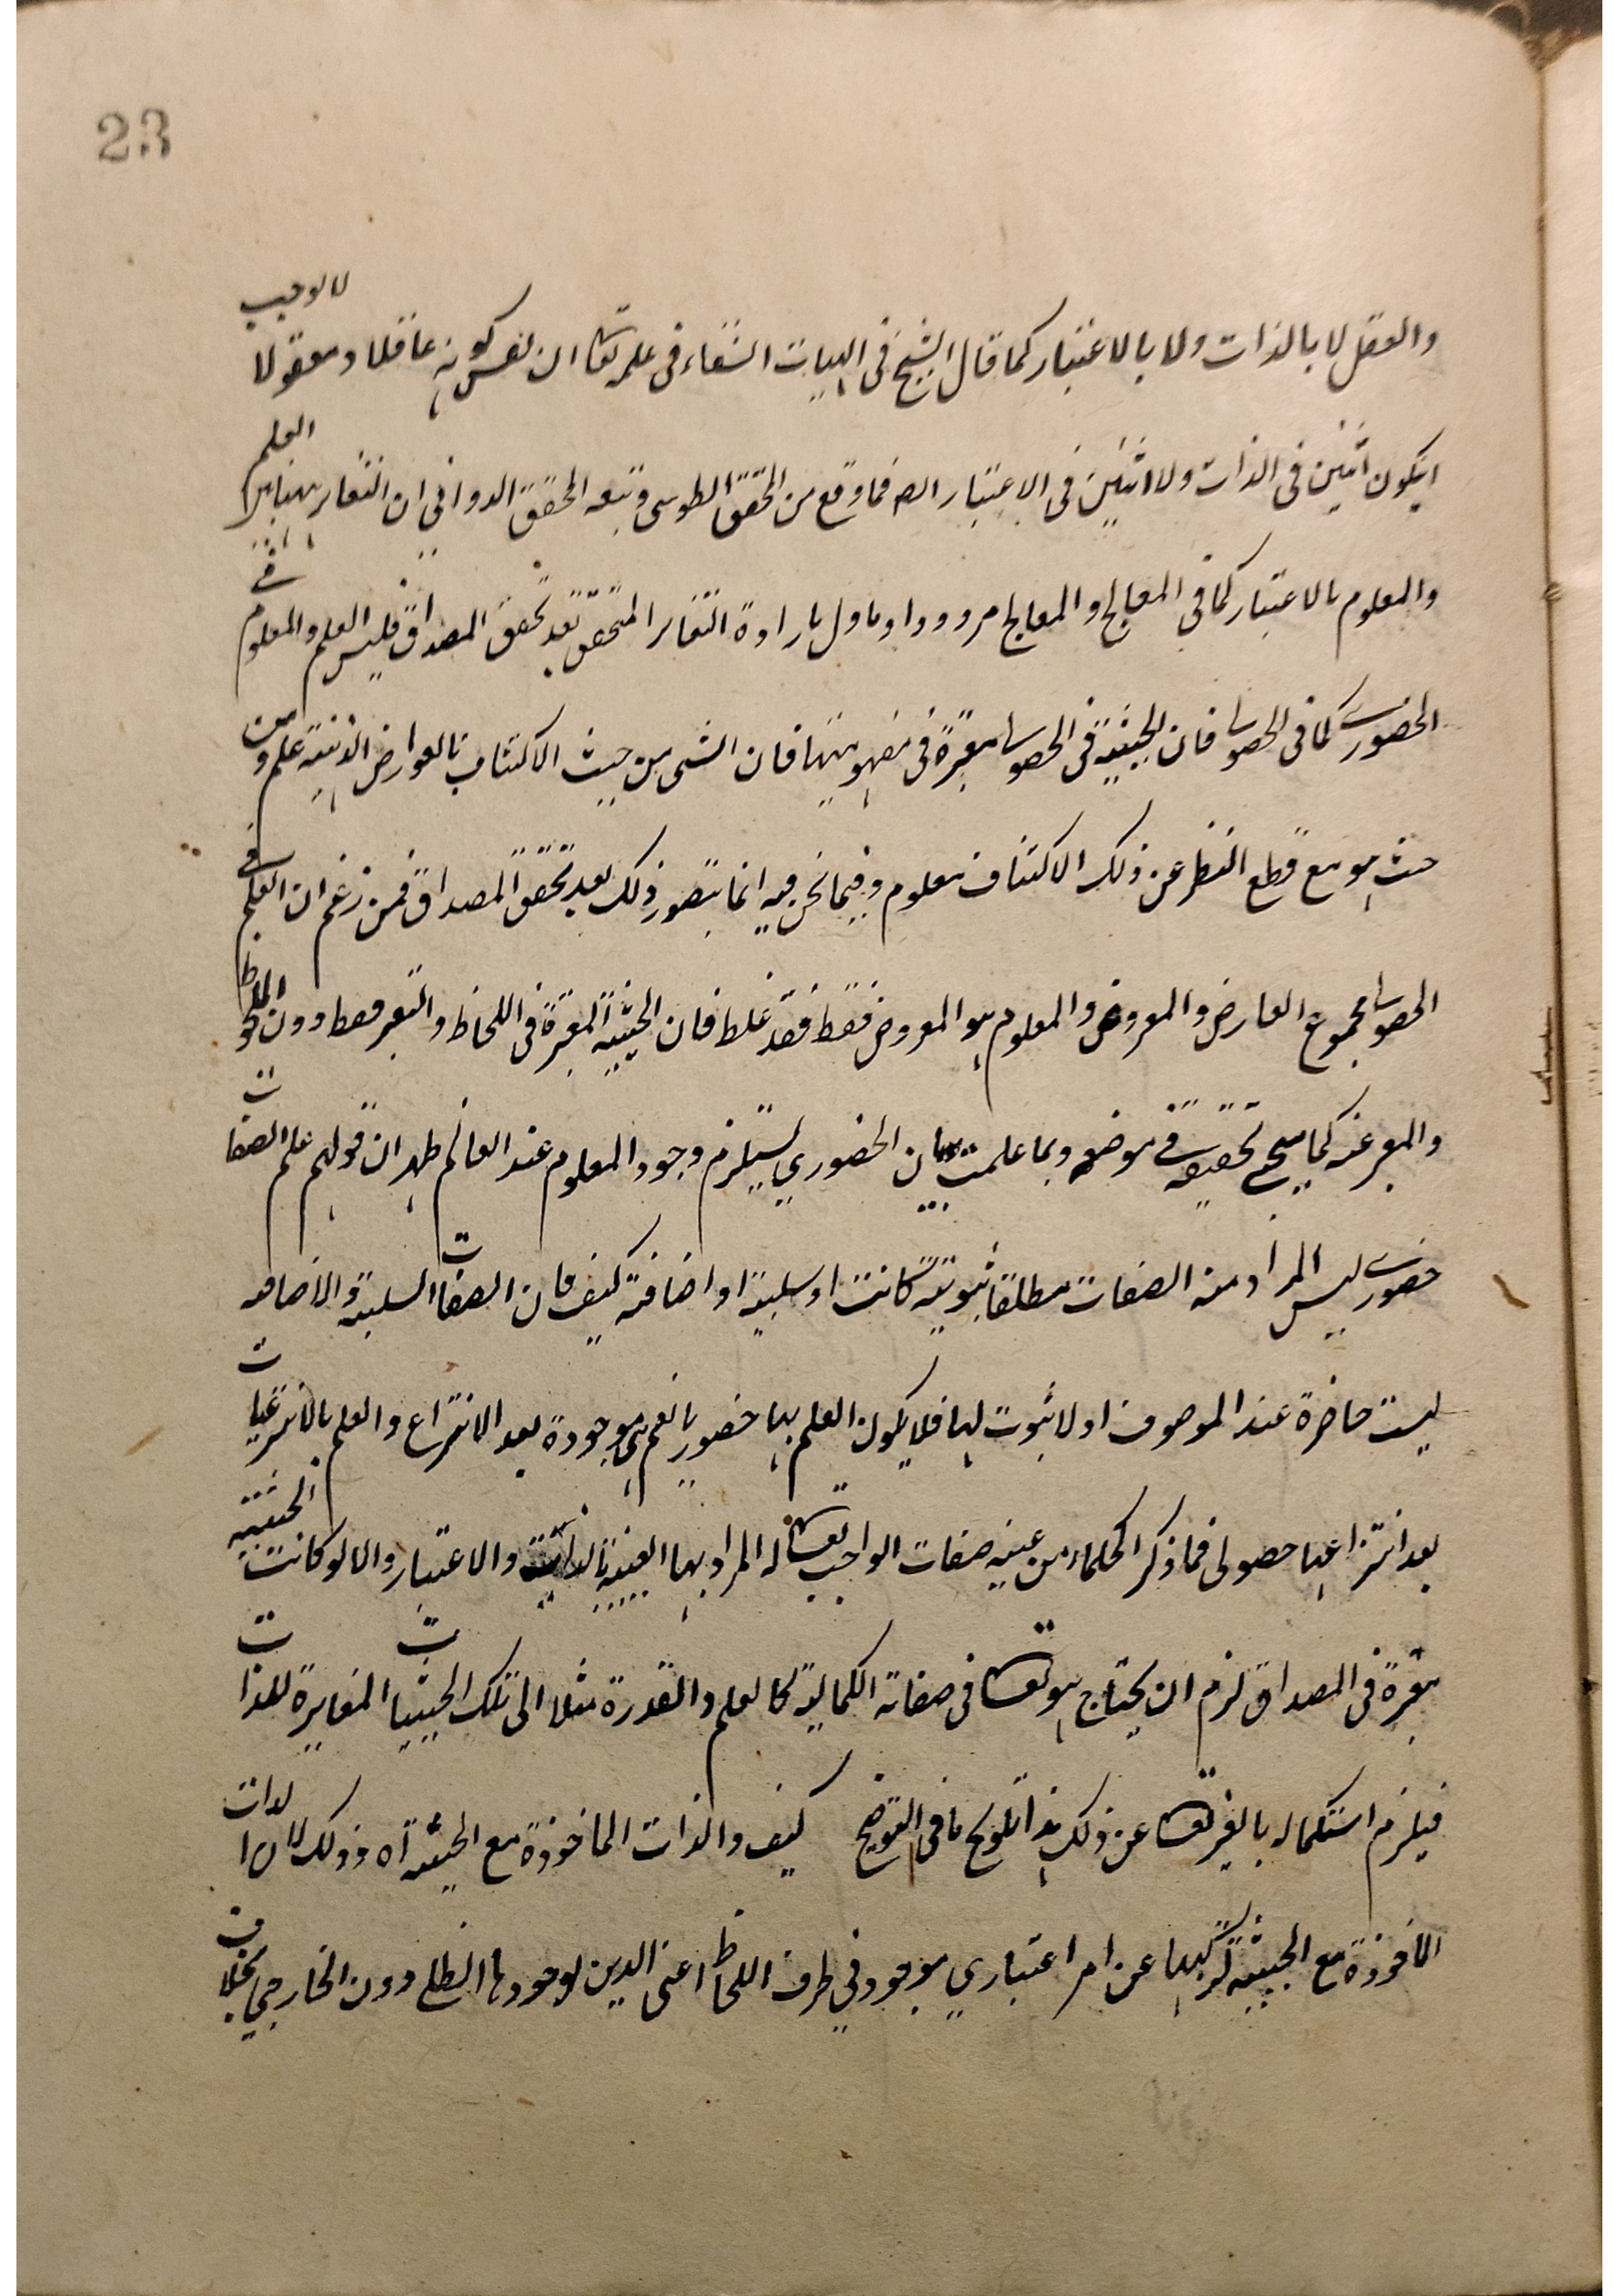 23
والعقل لا بالذات ولا بالاعتبار كما قال الشيخ فى الهيات الشفاء فى علمه تعالى ان نفس كونه عاقلا ومعقولا لا يوجب
ان يكون اثنين فى الذات ولا اثنين فى الاعتبار فما وقع من المحقق الطوسى وتبعه المحقق الدوانى ان التغاير بين العلم
والمعلوم بالاعتبار كما فى المعالج والمعالج مردود او ماول بارادة التغاير المتحقق بعد تحقق المصداق فليس العلم والمعلوم فى
الحضورى كما فى الحصولى فان الحيثية فى الحصولى معتبرة فى مفهوميتها فان الشى من حيث الاكتناف بالعوارض الذهنية علم ومن
حيث هو مع قطع النظر عن ذلك الاكتناف معلوم وفيما نحن فيه انما يتصور ذلك بعد تحقق المصداق فمن زعم ان العلم فى
الحصولى مجموع العارض والمعروض والمعلوم هو المعروض فقط فقد غلط فان الحيثية المعتبرة فى اللحاظ والتعبير فقط دون الملحوظ
والمعبر عنه كما سيجئ تحقيقه فى موضعه وبما علمت ان الحضوري يستلزم وجود المعلوم عند العالم ظهر ان قولهم علم الصفات
حضورى ليس المراد منه الصفات مطلقا ثبوتية كانت او سلبية او اضافية كيف فان الصفات السلبية والاضافية
ليست حاضرة عند الموصوف اولا ثبوت لها فلا يكون العلم بها حضوريا نعم هى موجودة بعد الانتزاع والعلم بالانتزاعيات
بعد انتزاعها حصولى فما ذكر الحكماء من عينية صفات الواجب تعالى له المراد بها العينية بالذات والاعتبار والا لو كانت الحيثية
معتبرة فى المصداق لزم ان يحتاج هو تعالى فى صفاته الكمالية كالعلم والقدرة مثلا الى تلك الحيثيات المغايرة للذات
فيلزم استكماله بالغير تعالى عن ذلك هذا تلويح ما فى التوضيح كيف والذات الماخوذة مع الحيثية آه وذلك لان الذات
الماخوذة مع الحيثية تركبها عن امر اعتباري موجود في ظرف اللحاظ اعنى الذهن لوجودها الظلى دون الخارجي بخلاف